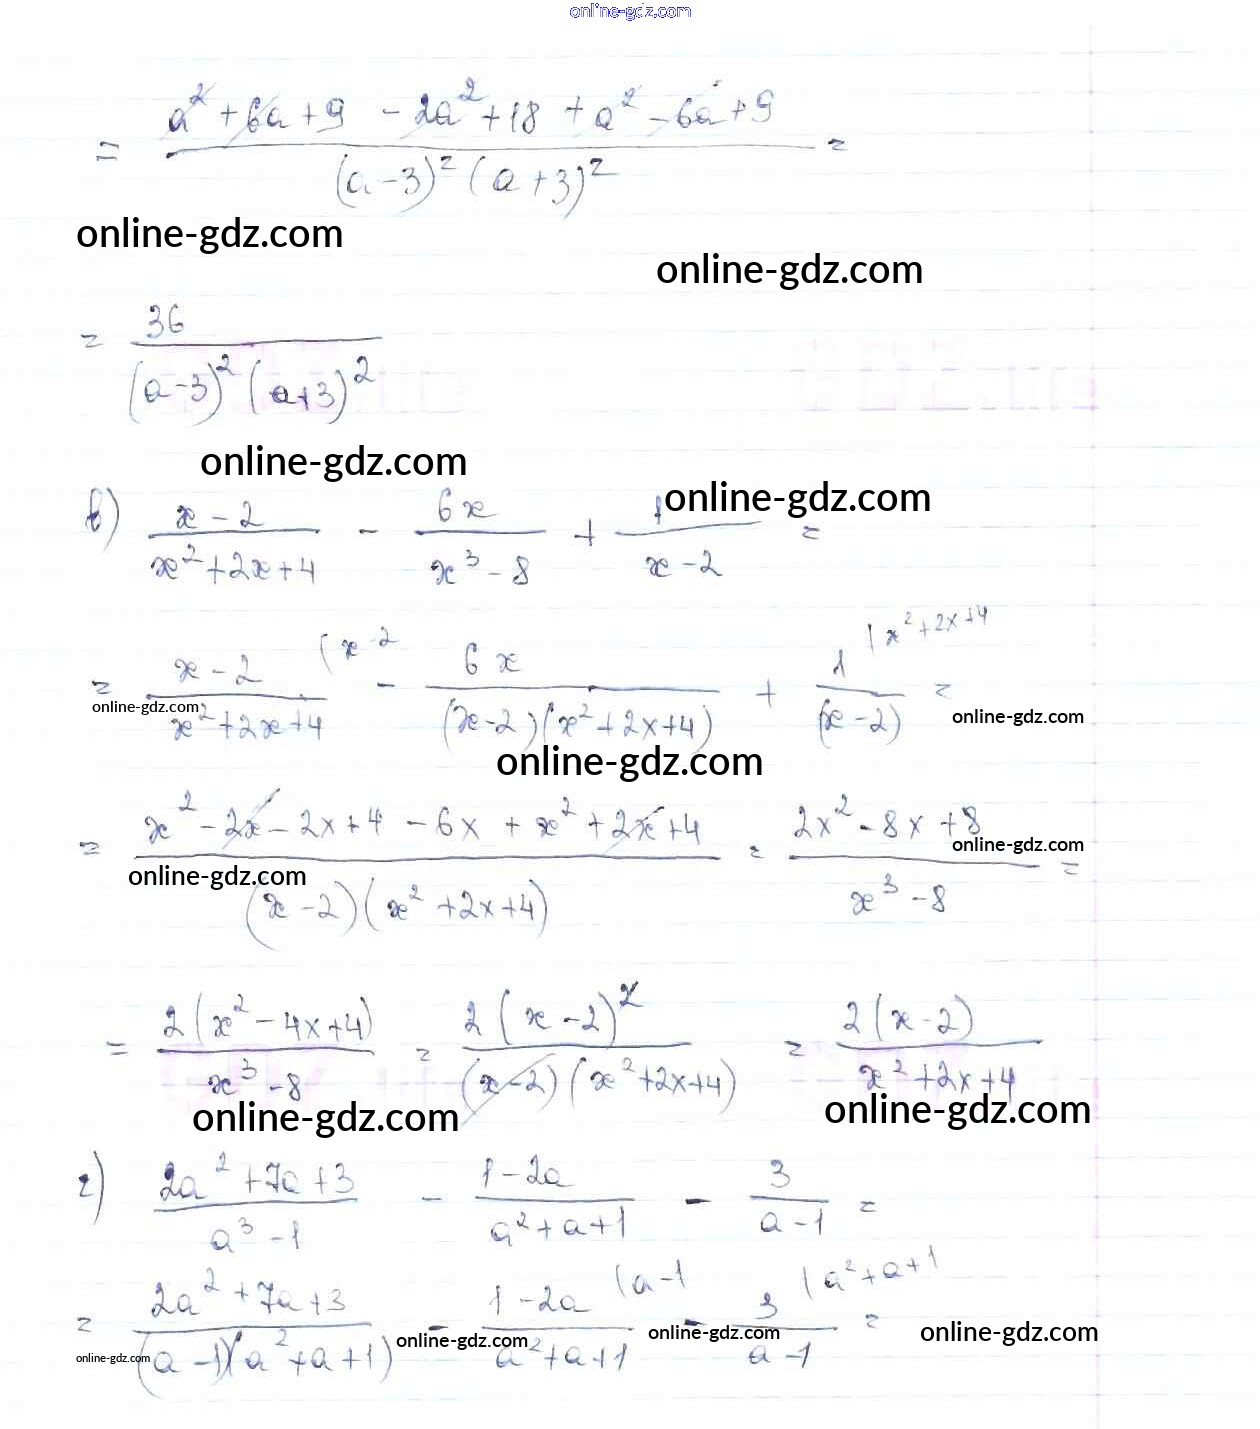 online-gdz.com
= (a² + 6a + 9 - 2a² + 18 + a² - 6a + 9) / ((a-3)² (a+3)²) =
online-gdz.com
online-gdz.com
= 36 / ((a-3)² (a+3)²)
online-gdz.com
online-gdz.com
в) (x-2)/(x²+2x+4) - 6x/(x³-8) + 1/(x-2) =
= (x-2)/(x²+2x+4) (x-2 - 6x/((x-2)(x²+2x+4)) + 1/(x-2) (x²+2x+4 =
online-gdz.com
online-gdz.com
online-gdz.com
= (x² - 2x - 2x + 4 - 6x + x² + 2x + 4)/((x-2)(x²+2x+4)) = (2x² - 8x + 8)/(x³-8) =
online-gdz.com
online-gdz.com
= 2(x²-4x+4)/(x³-8) = 2(x-2)²/((x-2)(x²+2x+4)) = 2(x-2)/(x²+2x+4)
online-gdz.com
online-gdz.com
г) (2a²+7a+3)/(a³-1) - (1-2a)/(a²+a+1) - 3/(a-1) =
= (2a²+7a+3)/((a-1)(a²+a+1)) - (1-2a)/(a²+a+1) (a-1 - 3/(a-1) (a²+a+1 =
online-gdz.com
online-gdz.com
online-gdz.com
online-gdz.com